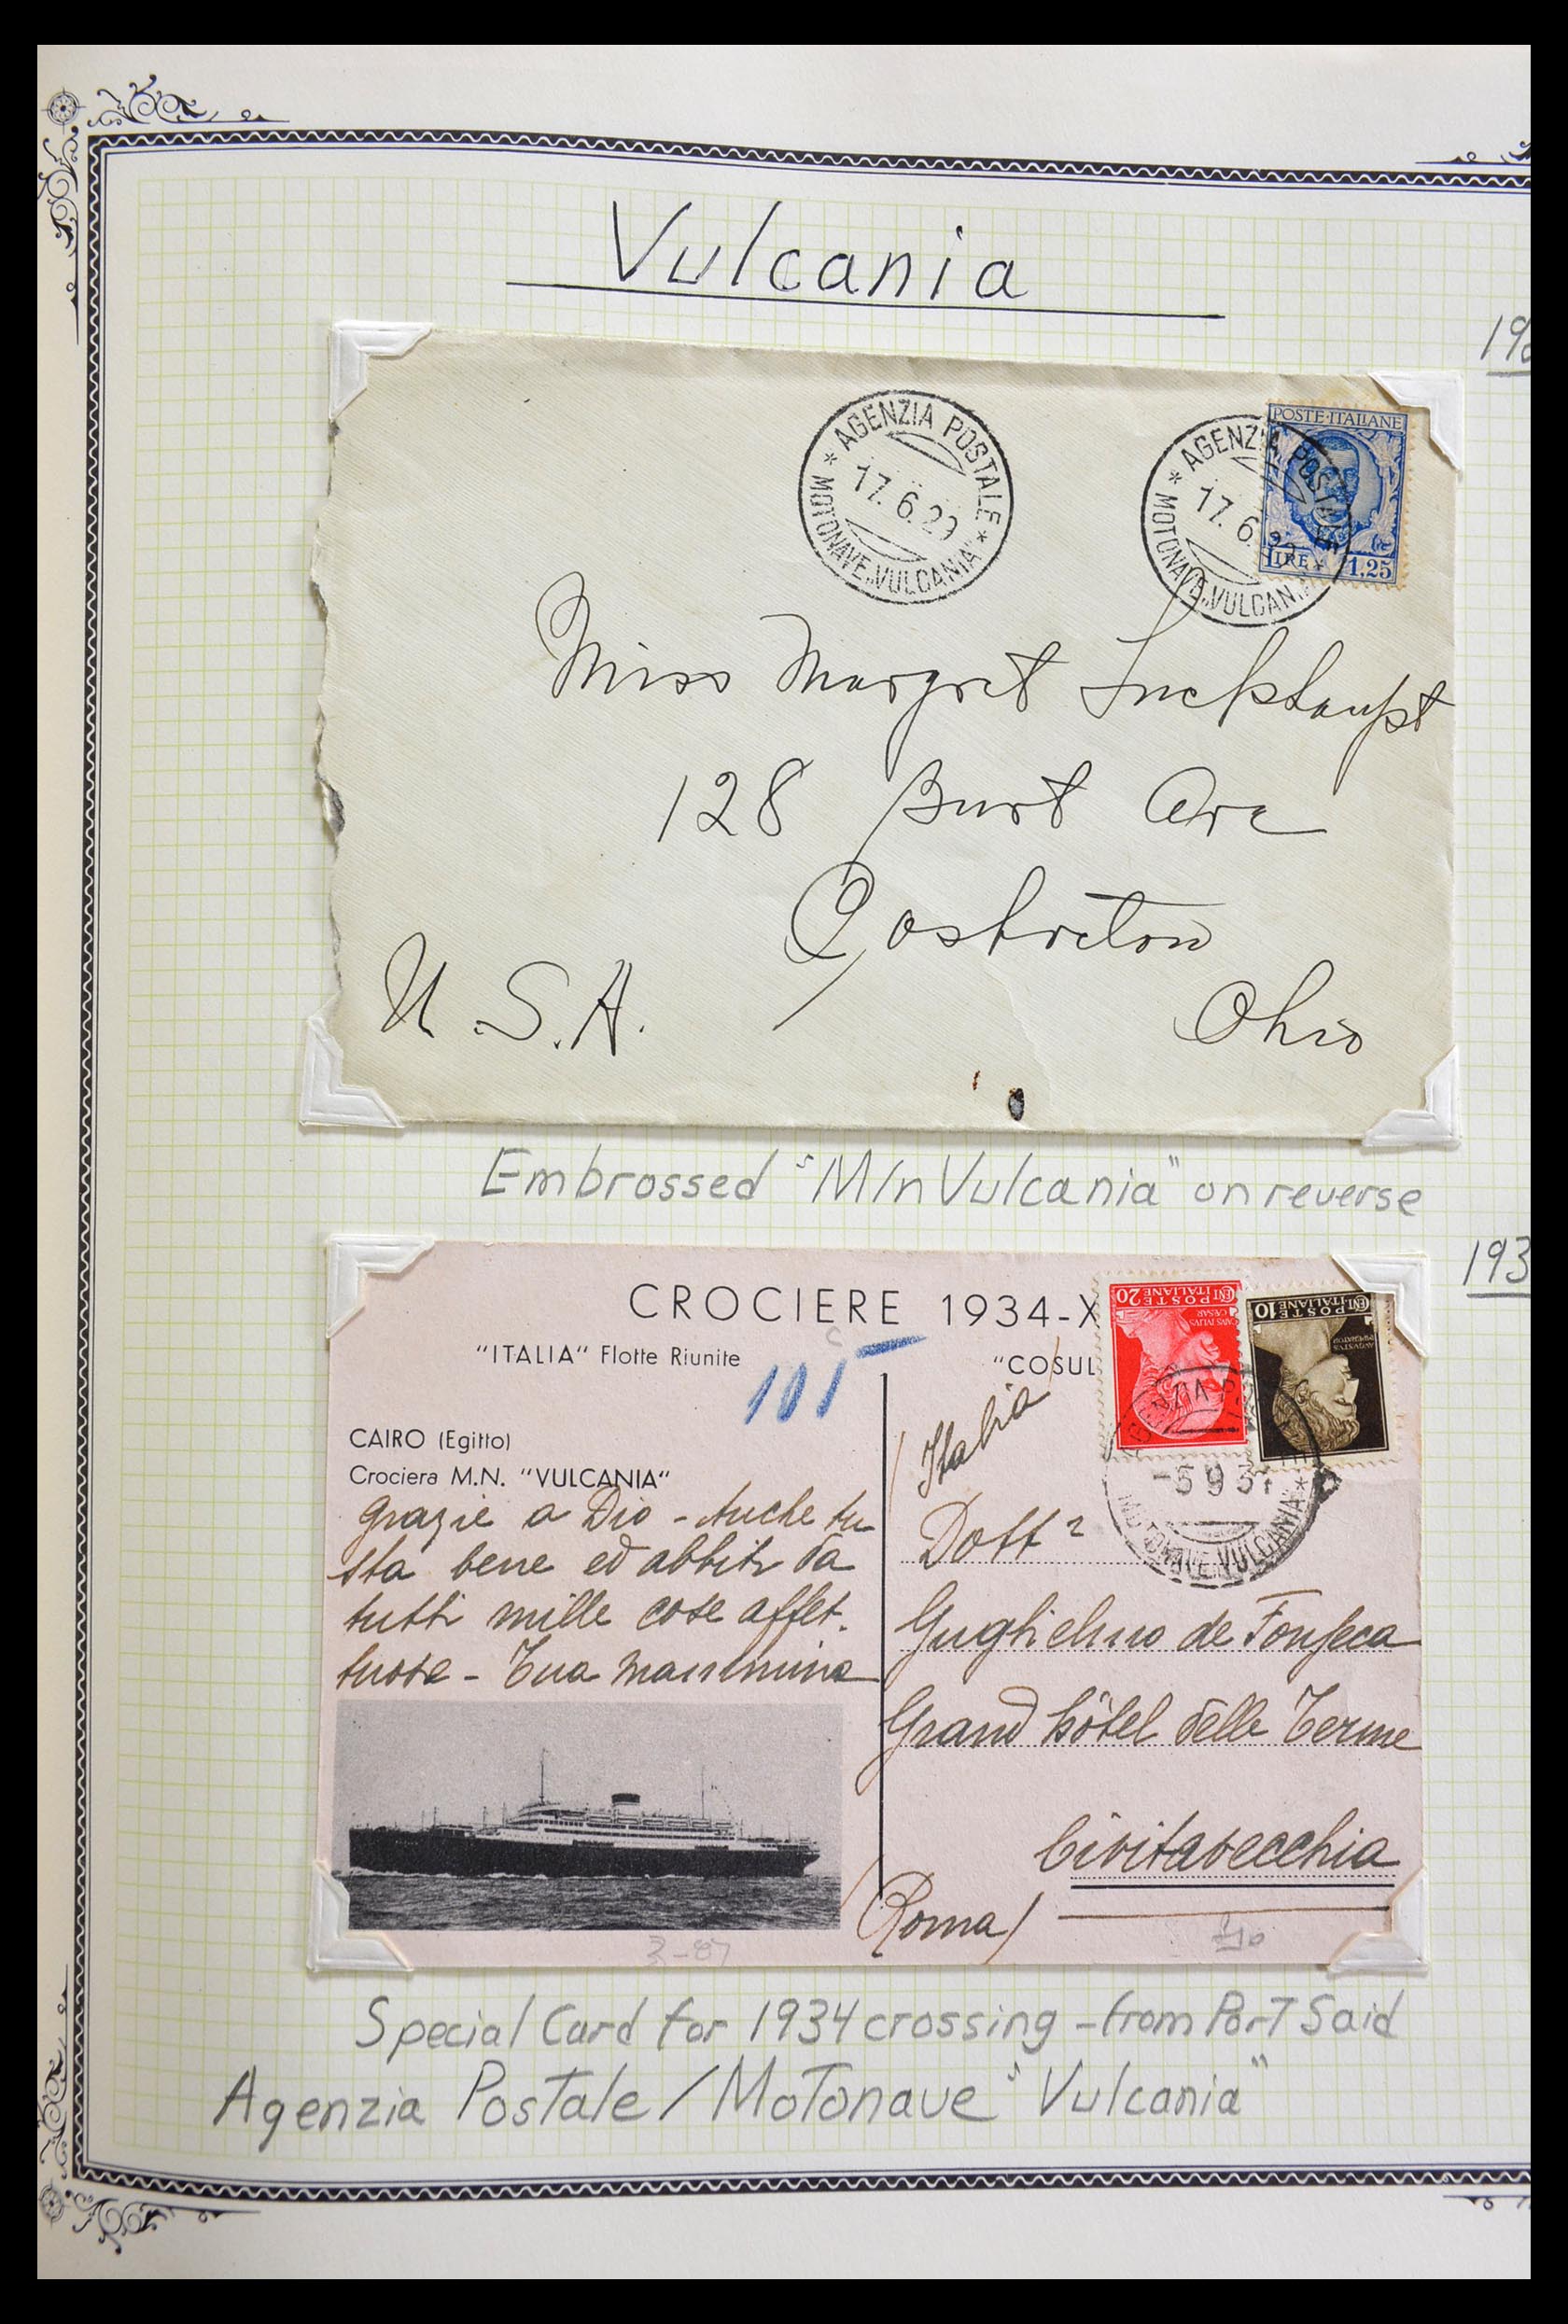 Vulcania
19
AGENZIA POSTALE
17.6.29
MOTONAVE „VULCANIA"
AGENZIA POSTALE
17.6.29
MOTONAVE „VULCANIA
POSTE·ITALIANE
LIRE 1,25
Miss Margret
128 Burt Ave
Ohio
U.S.A.
Embrossed "M/n Vulcania" on reverse
193
CROCIERE 1934-X
"ITALIA" Flotte Riunite
"COSUL
101
CENT 20
POSTE ITALIANE
CENT 10
POSTE ITALIANE
CAIRO (Egitto)
Crociera M.N. "VULCANIA"
AGENZIA P
-5 9 34
MOTONAVE VULCANIA
grazie a Dio - Anche tu
sta bene ed abbiti da
tutti mille cose affet.
tuose - Tua mammina
Italia
Dott r
Guglielmo de Fonseca
Grand hôtel delle Terme
Civitavecchia
(Roma)
3-87
Special Card for 1934 crossing - from Port Said
Agenzia Postale / Motonave "Vulcania"